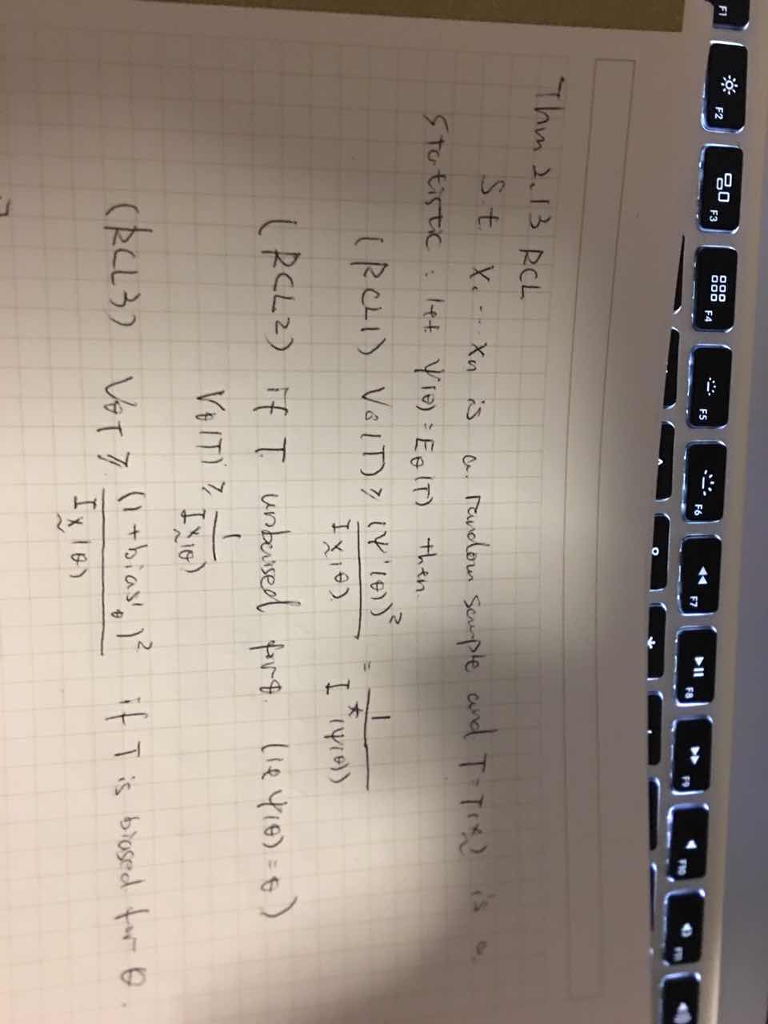 Thm 2.13 RCL
S.t X1 ... Xn is a random sample and T = T(x) is a
statistic : let ψ(θ) = Eθ(T) then
(RCL1) Vθ(T) ≥ (ψ'(θ))² / I x(θ) = 1 / I*(ψ(θ))
(RCL2) if T unbiased for θ. (ie ψ(θ) = θ)
Vθ(T) ≥ 1 / I x(θ)
(RCL3) VθT ≥ (1 + bias'θ)² / I x(θ) if T is biased for θ.
F1
F2
F3
F4
F5
F6
F7
F8
F9
F10
F11